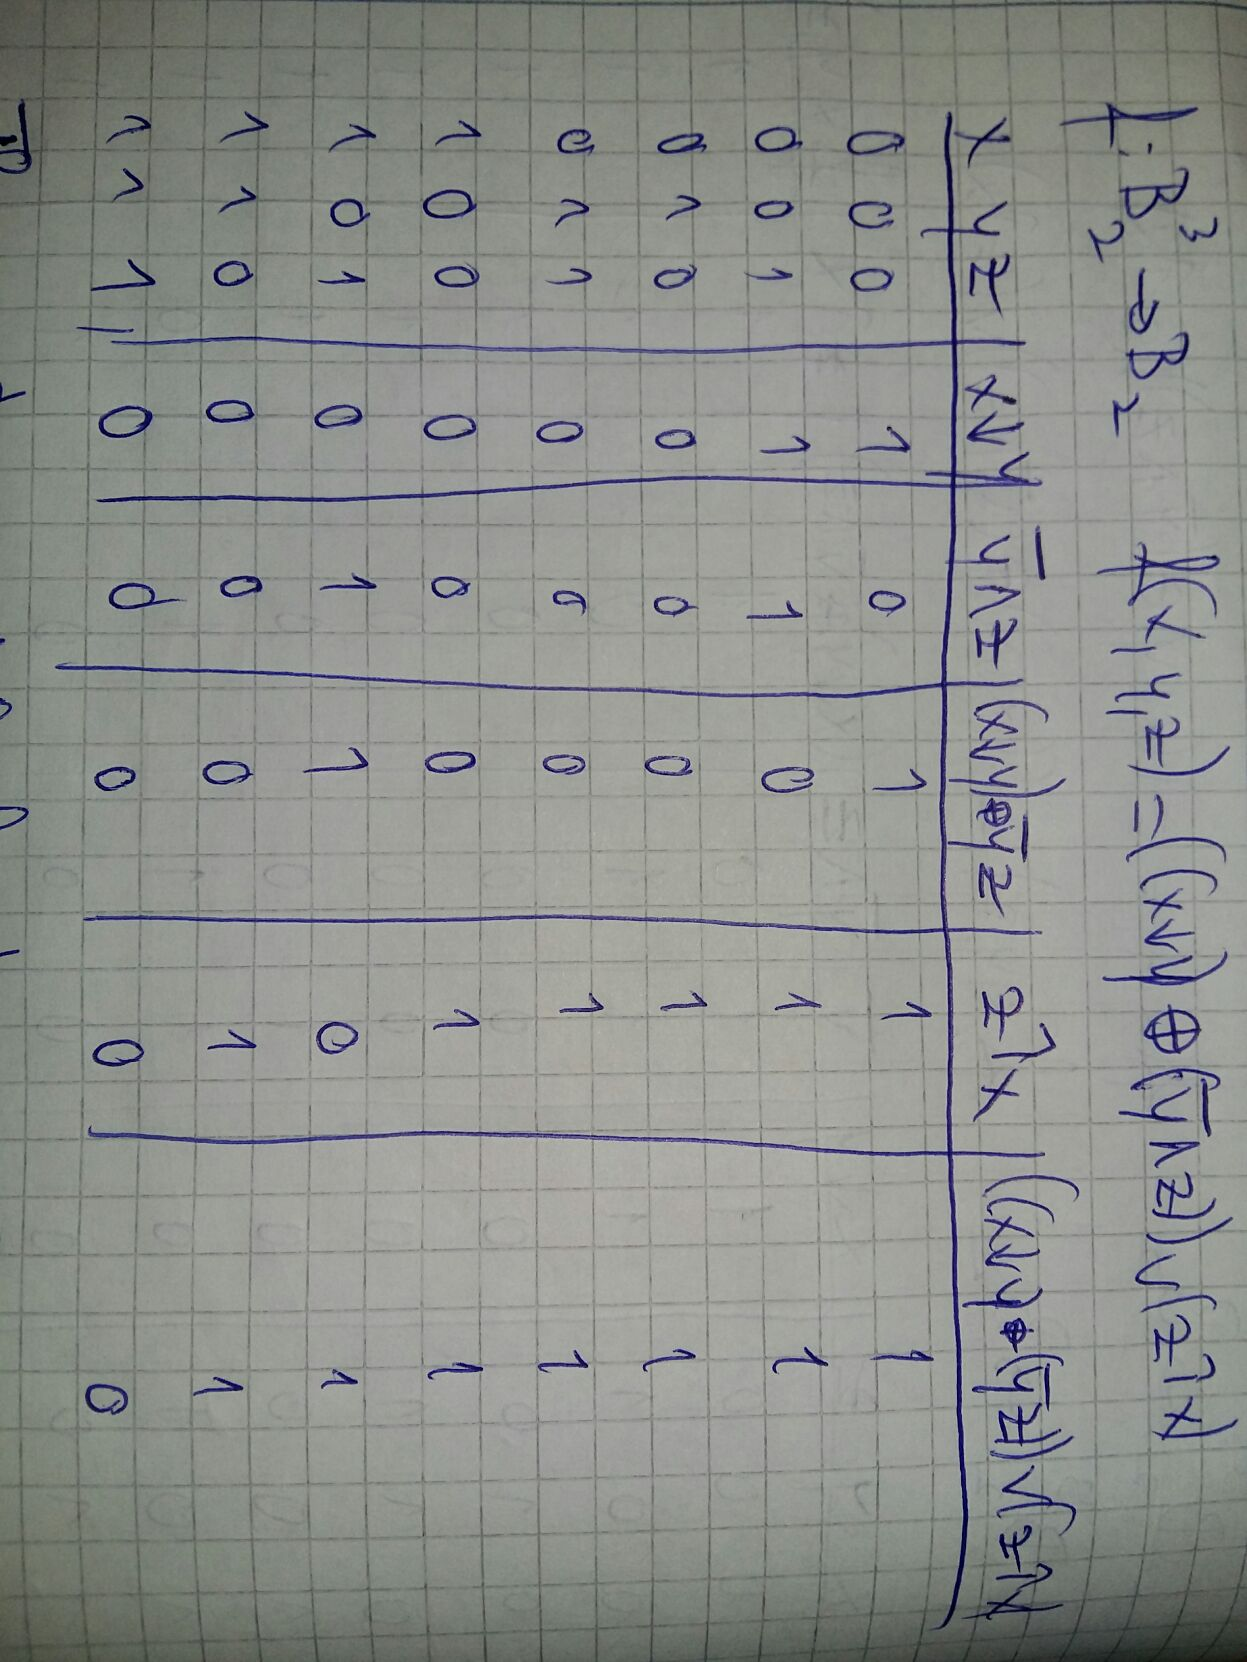 f: B₂³ → B₂ f(x,y,z) = ((x↓y) ⊕ (y̅∧z)) ∨ (z↑x)
x y z | x↓y | y̅∧z | (x↓y)⊕y̅z | z↑x | ((x↓y)⊕(y̅z))∨(z↑x)
0 0 0 | 1 | 0 | 1 | 1 | 1
0 0 1 | 1 | 1 | 0 | 1 | 1
0 1 0 | 0 | 0 | 0 | 1 | 1
0 1 1 | 0 | 0 | 0 | 1 | 1
1 0 0 | 0 | 0 | 0 | 1 | 1
1 0 1 | 0 | 1 | 1 | 0 | 1
1 1 0 | 0 | 0 | 0 | 1 | 1
1 1 1 | 0 | 0 | 0 | 0 | 0